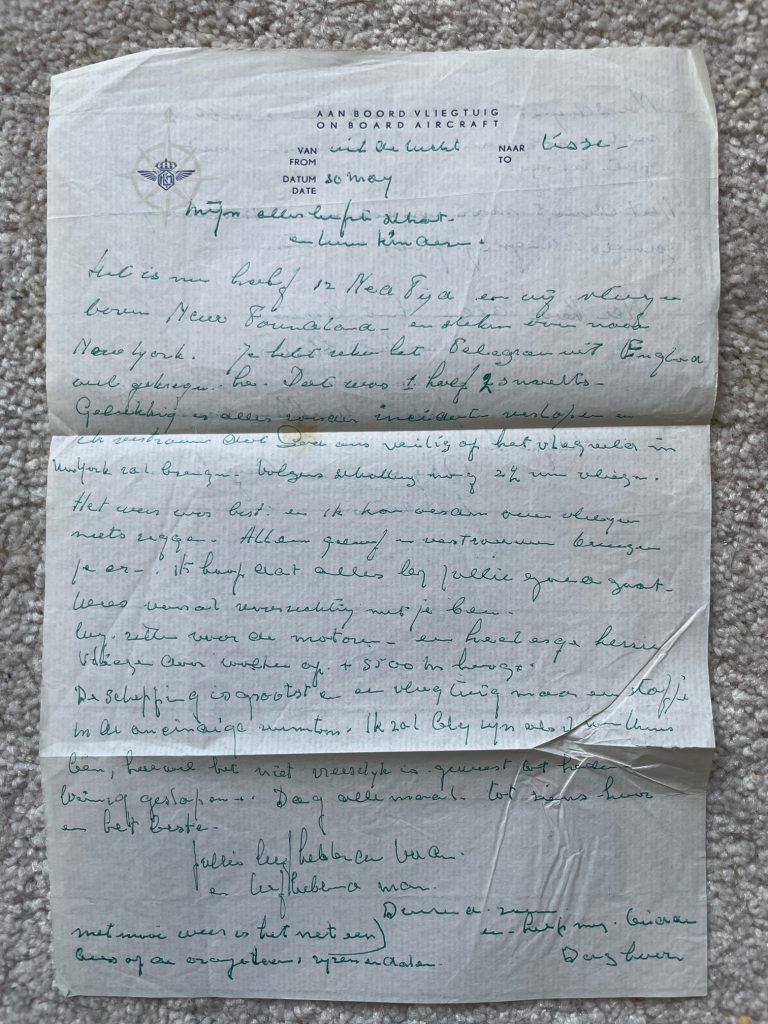 AAN BOORD VLIEGTUIG
ON BOARD AIRCRAFT
VAN uit de lucht NAAR Lisse -
FROM TO
DATUM 30 May
DATE
KLM
Mijn allerliefste
en kinderen.
Het is nu half 12 Ned Tijd en wij vliegen
boven New Foundland - en steken over naar
New York. Je hebt zeker het Telegram uit England
wel gekregen. he. Dat was 1 half 2 snachts -
Gelukkig is alles zonder incidenten verlopen en
ik vertrouw dat God ons veilig op het vliegveld in
New York zal brengen - Volgens schatting nog 2½ uur vliegen.
Het weer was best. en ik kan over vliegen
niets zeggen - Alleen geloof en vertrouwen brengen
je er -. ik hoop dat alles bij jullie goed gaat -
Wees vooral voorzichtig met je been -
Wij zitten voor de motoren - en heel enge
Vliegen door wolken op + 5500 M hoog =.
De schepping is groots en een vliegtuig maar een stofje
in de oneindige ruimtens. Ik zal blij zijn als ik weer thuis
ben, hoewel het niet vreeselijk is geweest tot heden
weinig geslapen -. Dag allemaal. tot ziens hoor
en het beste -
Jullie liefhebbende Vader.
en liefhebbend man.
en
met mooi weer is het net een
bus op de en dalen -
Dag hoor